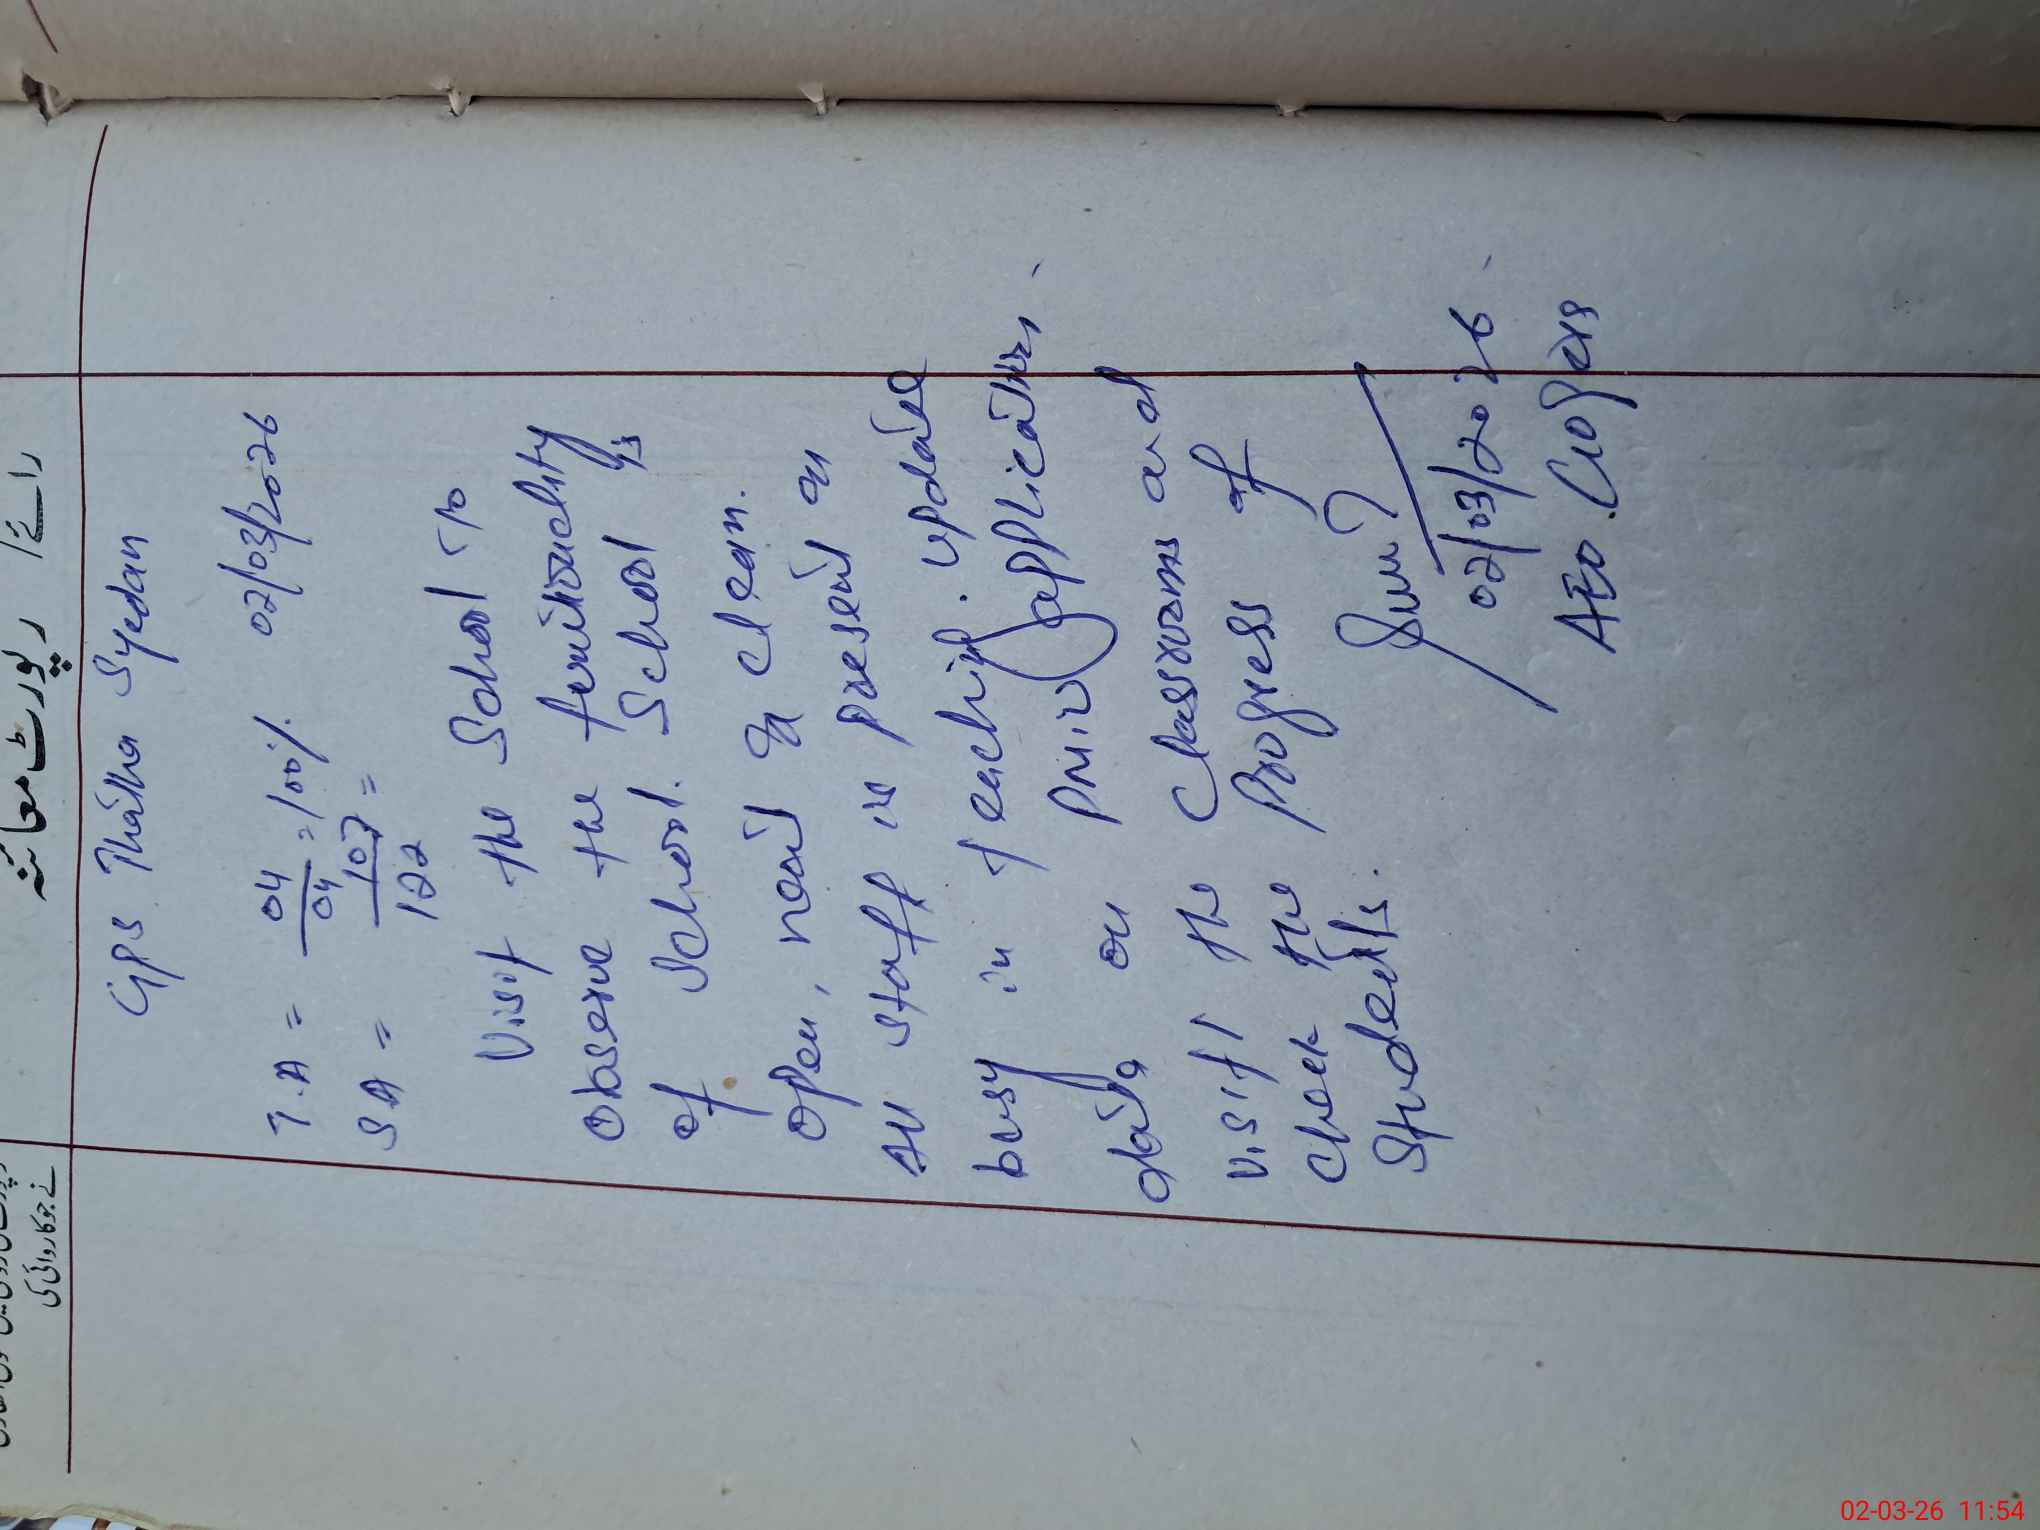 رپورٹ معائنہ / رائے
نے جو کاروائی کی
GPS Thátha Syedan
T.A = 04/04 = 100%. 02/03/2026
S A = 107/122 =
Visit the School to
observe the funitioachity
of School. School is
open, neat & clean.
All staff is present on
busy in teaching. update
data on PMIU application.
Visit the Classrooms and
Check the Progress of
Students.
02/03/2026
AEO.
02-03-26 11:54